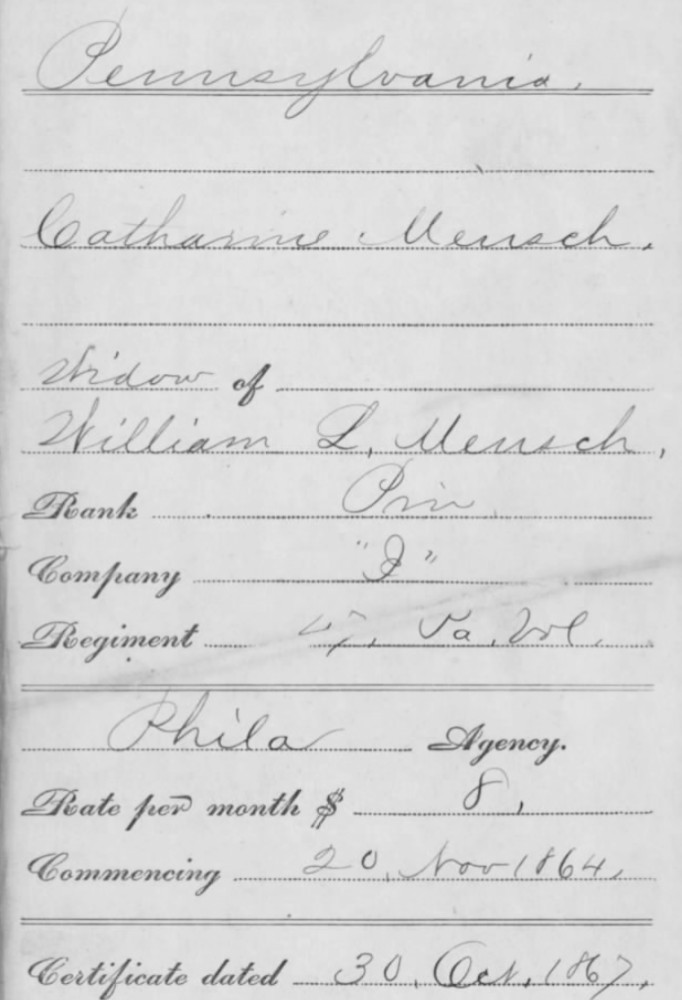 Pennsylvania.
Catharine Mensch.
Widow of
William L. Mensch,
Rank Priv
Company "I"
Regiment 47. Pa. Vol.
Phila Agency.
Rate per month $ 8,
Commencing 20, Nov 1864,
Certificate dated 30, Oct, 1867,